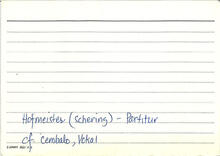 Hofmeister (Schering) - Partitur
cf. Cembalo, Vokal